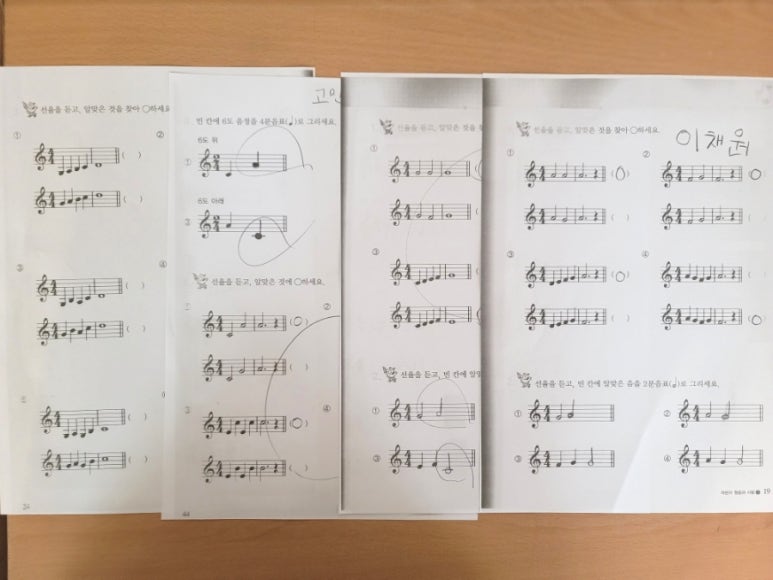 선율을 듣고, 알맞은 것을 찾아 ○하세요
①
②
( )
( )
③
④
( )
( )
⑤
( )
( )
24
빈 칸에 6도 음정을 4분음표(♩)로 그리세요.
6도 위
①
6도 아래
③
선율을 듣고, 알맞은 것에 ○하세요.
①
②
(○)
( )
③
④
(○)
( )
44
선율을 듣고, 알맞은 것을 찾
①
③
선율을 듣고, 빈 칸에 알맞
①
③
선율을 듣고, 알맞은 것을 찾아 ○하세요.
이채원
①
②
(○)
○
( )
(
③
④
(○)
(
( )
○
선율을 듣고, 빈 칸에 알맞은 음을 2분음표(𝅗𝅥)로 그리세요.
①
②
③
④
19